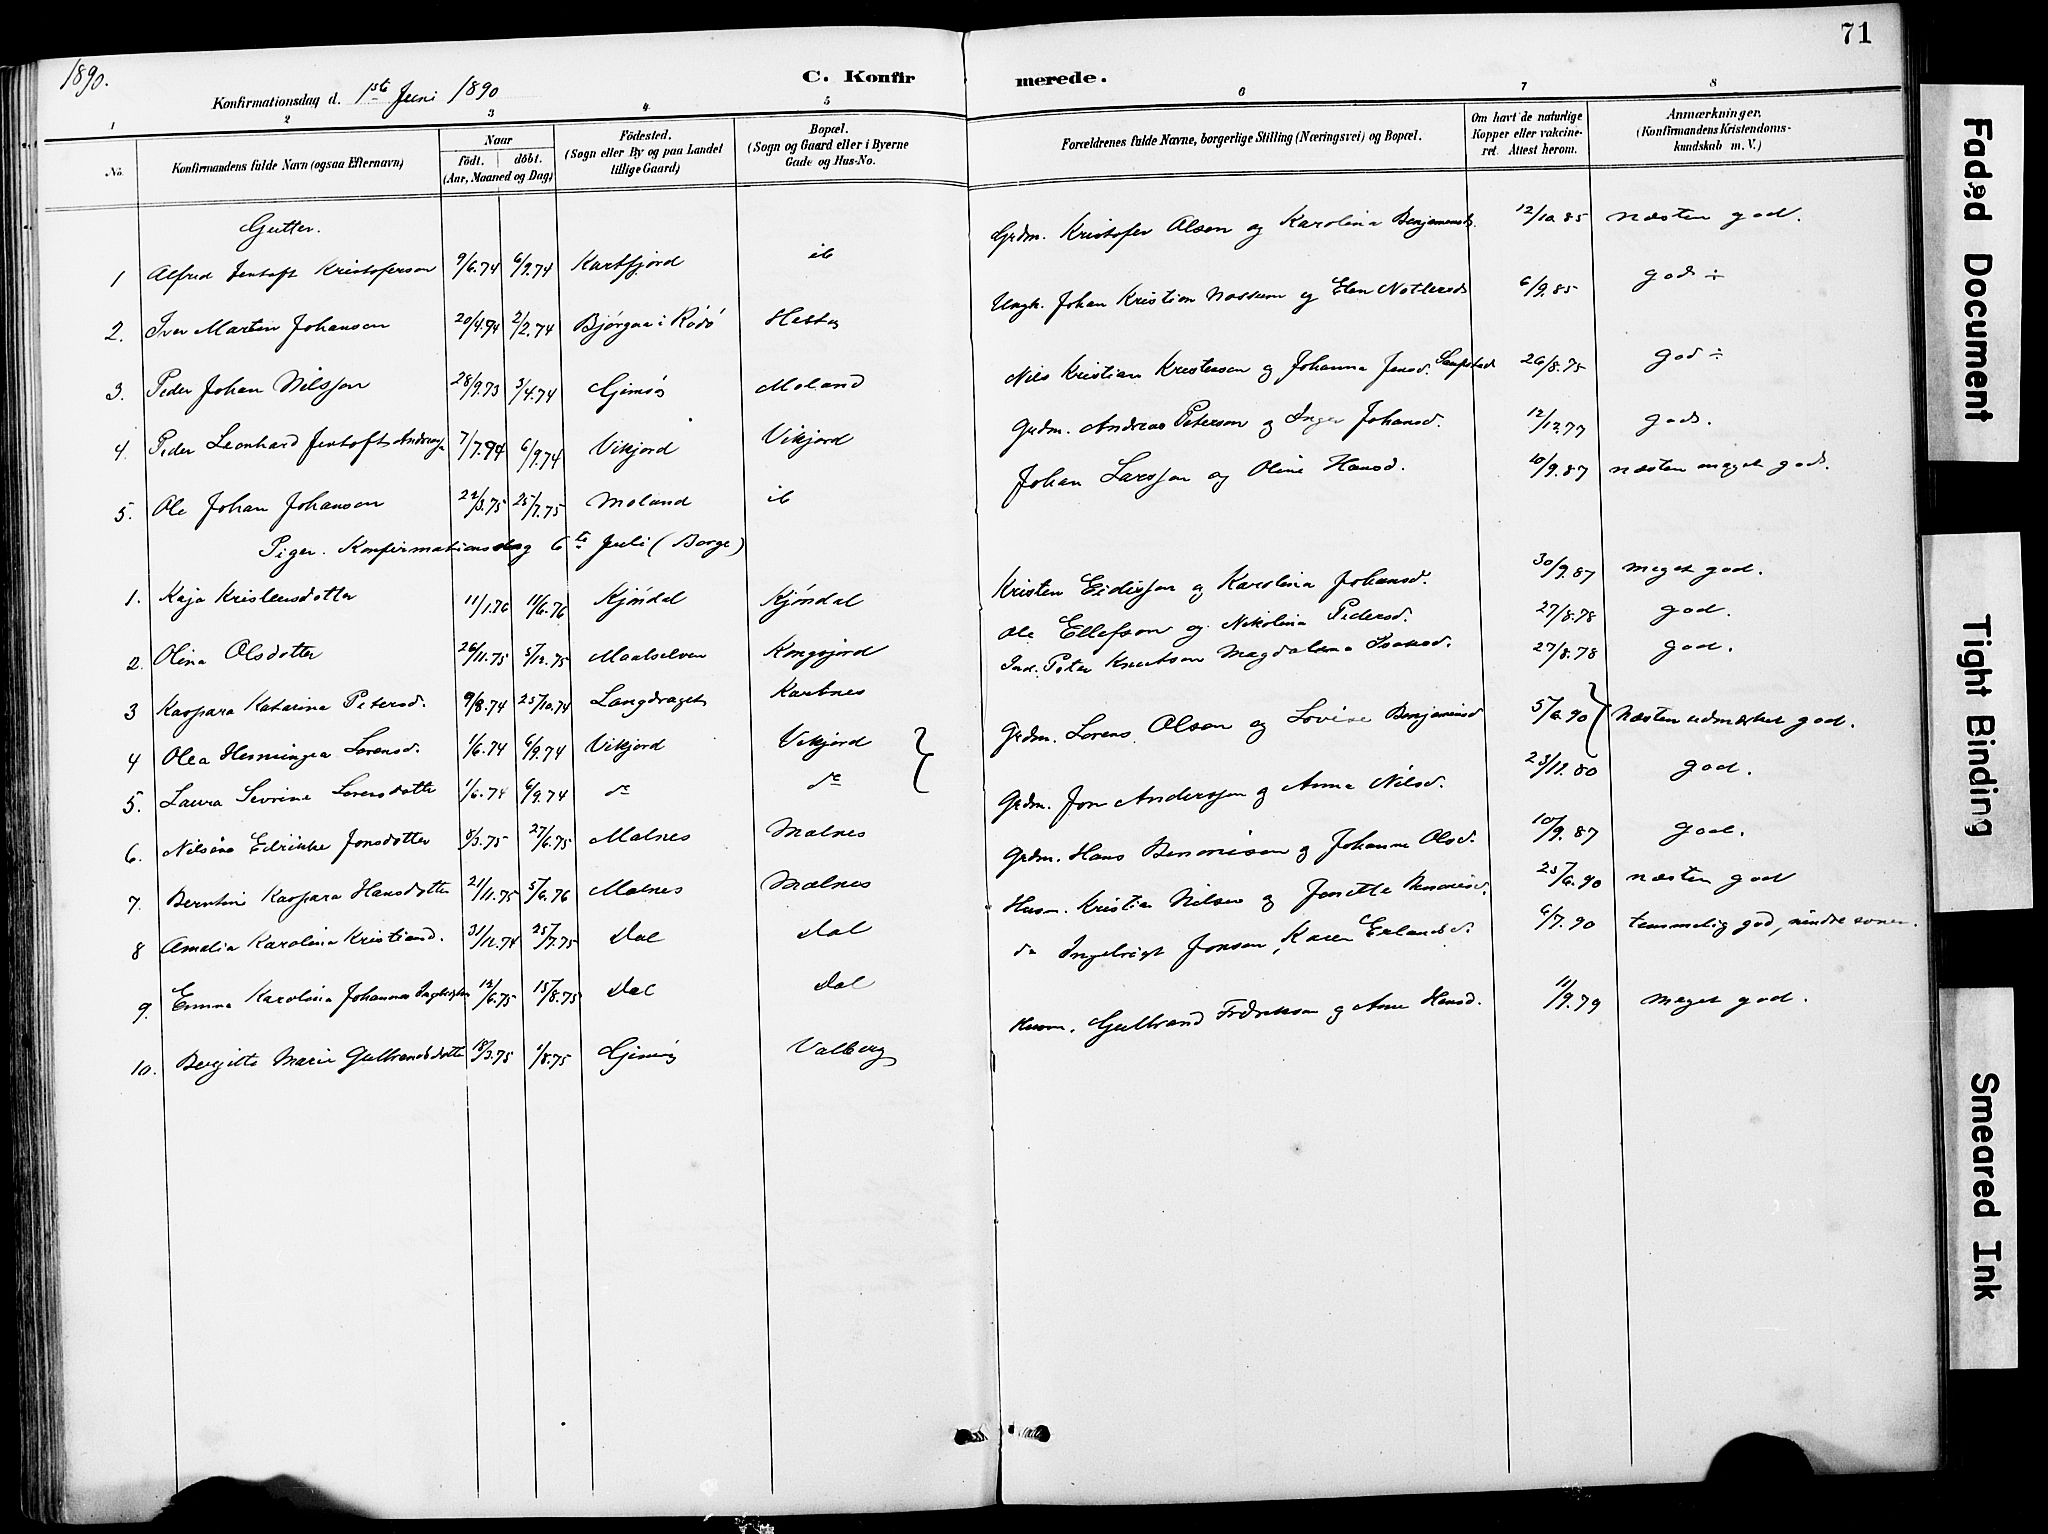 71
1890.
C. Konfirmerede.
Konfirmationsdag d. 1ste Juni 1890
1 2 3 4 5 6 7 8
No. Konfirmandens fulde Navn (ogsaa Efternavn) Naar födt. döbt. (Aar, Maaned og Dag) Födested. (Sogn eller By og paa Landet tillige Gaard) Bopæl. (Sogn og Gaard eller i Byerne Gade og Hus-No. Forældrenes fulde Navne, borgerlige Stilling (Næringsvei) og Bopæl. Om havt de naturlige Kopper eller vakcineret. Attest herom. Anmærkninger. (Konfirmandens Kristendomskundskab m. V.)
Gutter.
1 Alfred Jentoft Kristoferson 9/6.74 6/9.74 Kartfjord ib Grdm. Kristofer Olsen og Karolina Benjaminsd. 12/10.85 næsten god.
2. Iver Martin Johansen 20/4.74 2/2.74 Bjørgaa i Rödö Ungk. Johan Kristian og Elen 6/9.85 god ÷
3. Peder Johan Nilsson 28/9.73 3/4.74 Gimsö Moland Nils Kristian Kristensen og Johanna Jensd. 26/8.75 god ÷
4. Peder Leonhard Jentoft 7/7.74 6/9.74 Vikjord Vikjord Grdm. Andreas Peterson og Inger Johansd. 12/12.77 god.
5. Ole Johan Johansen 22/3.75 25/7.75 Moland ib Johan Larssen og Oline Hansd. 10/9.87 næsten meget god.
Piger. Konfirmationsdag 6te Juli (Borge)
1. Kaja Kristensdotter 11/1.76 11/6.76 Kjöndal Kjöndal Kristen Eidissen og Karolina Johansd. 30/9.87 meget god.
2. Olina Olsdotter 26/11.75 5/12.75 Maalselven Kongsjord Ole Ellefson og Nikolina Pedersd. 27/8.78 god.
3 Kaspara Katarina Petersd. 9/8.74 25/10.74 Langdraget Kartnes Ind. Peter Knutsen Magdalena Isaksd. 27/8.78 god.
4 Olea Henningia Lorensd. 1/6.74 6/9.74 Vikjord Vikjord Grdm. Lorens Olsen og Lovise Benjaminsd 5/6.90 Næsten udmærket god.
5. Laura Sevrine Lorensdotter 1/6.74 6/9.74 do do
6. Nilsine Edrikke Jonsdotter 8/3.75 27/6.75 Malnes Malnes Grdm. Jon Anderssen og Anna Nilsd. 23/12.80 god.
7. Berntine Kaspara Hansdotter 21/11.75 5/6.76 Malnes Malnes Grdm. Hans Bennisen og Johanne Olsd. 10/9.87 god.
8 Amalia Karolina Kristiand. 31/12.74 25/7.75 Dal Dal Husm. Kristian Nilsen og Jonette 25/6.90 næsten god
9. Emma Karolina Johanna 12/6.75 15/8.75 Dal Dal do Ingebrigt Jonsen, Karen Erlandsd. 6/7.90 temmelig god, mindre
10. Bergitte Marie Gulbrandsdotter 18/3.75 1/8.75 Gimsö Valberg Husm. Gulbrand Fredriksen og Ane Hansd. 11/9.79 meget god.
Faded Document
Tight Binding
Smeared Ink